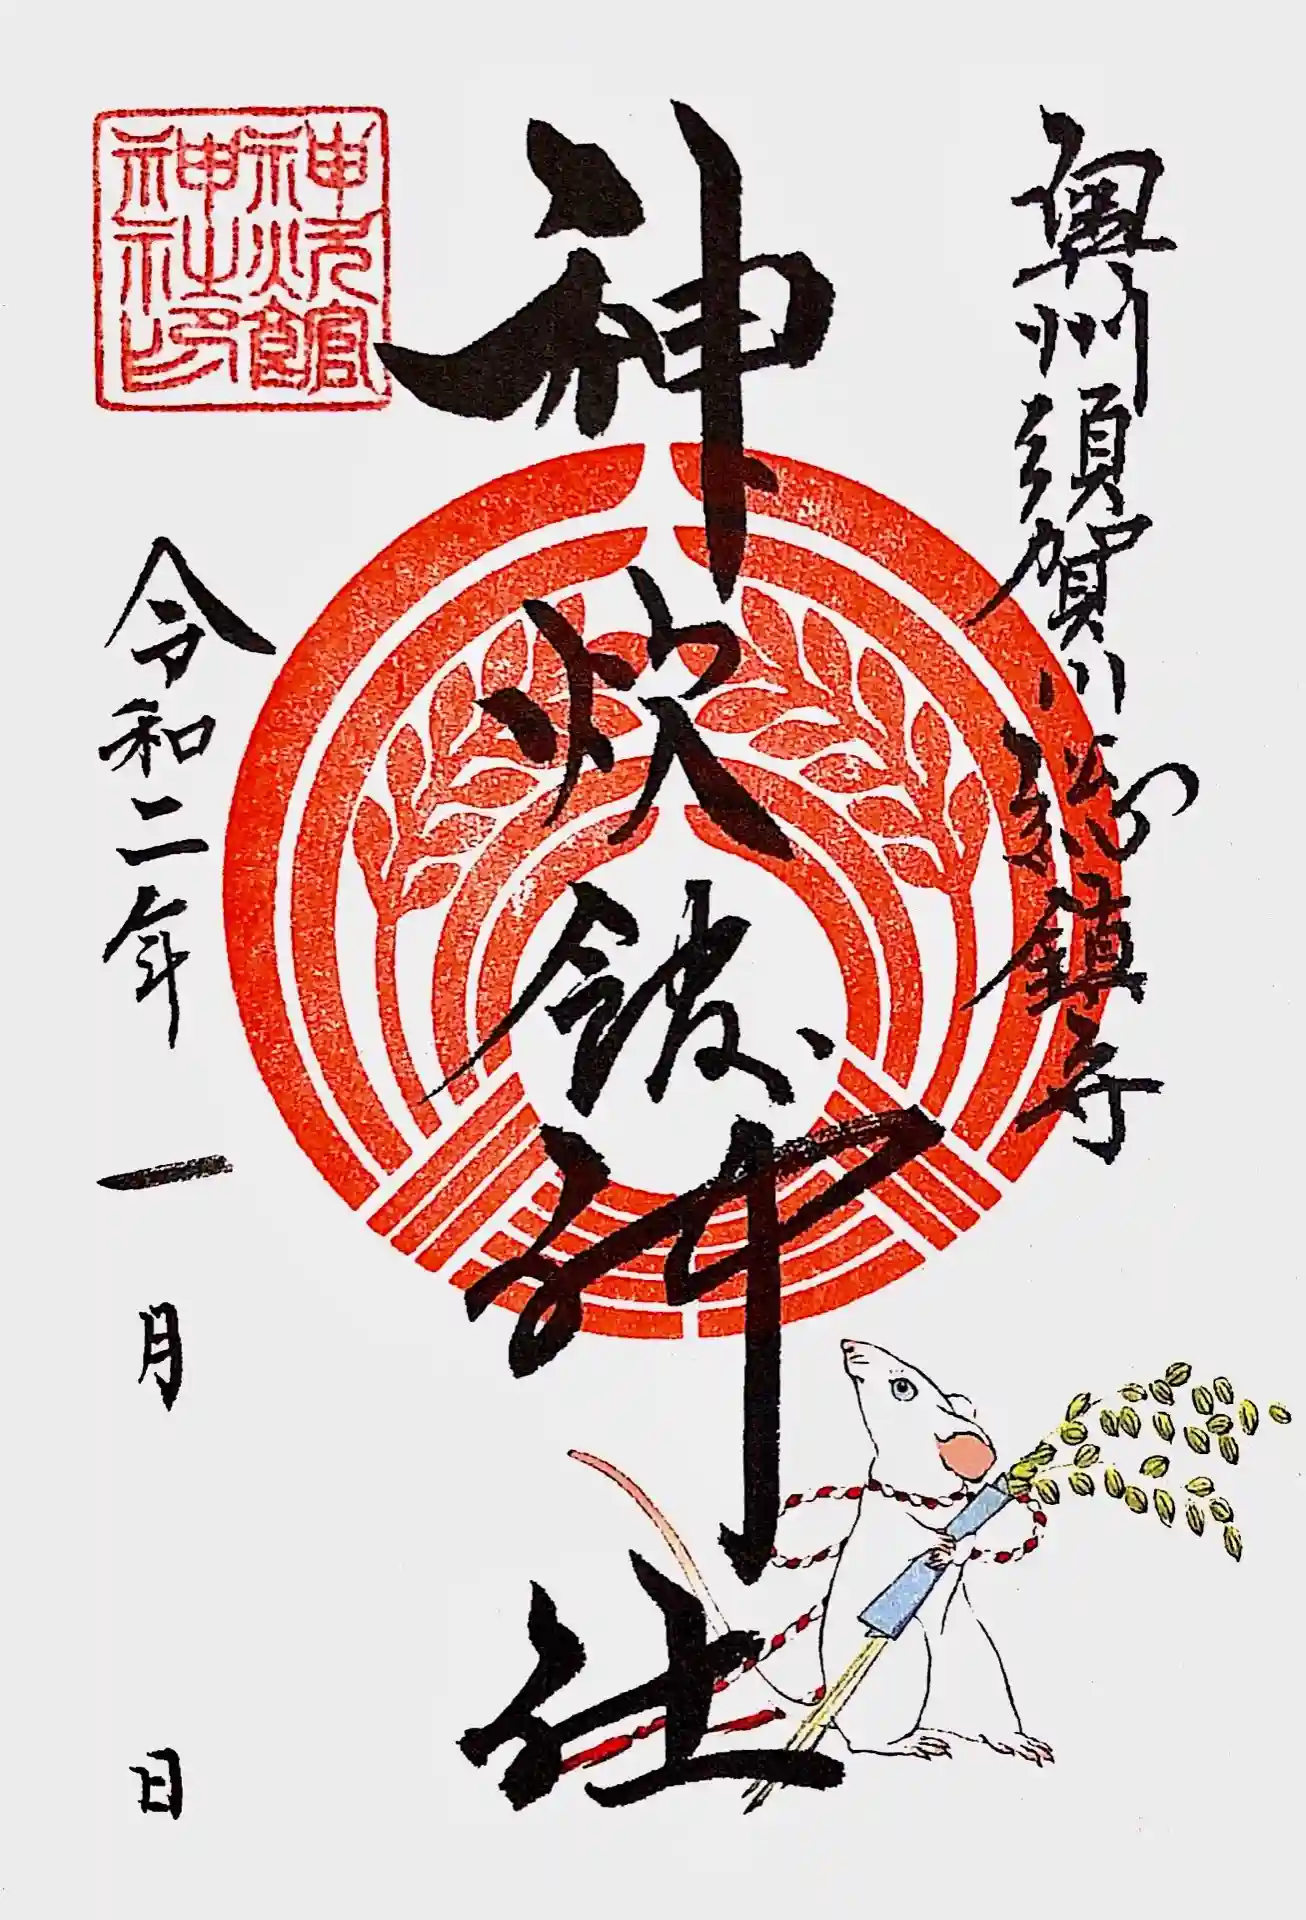 奥州須賀川総鎮守
神炊館神社
神炊館
神社印
令和二年 一月 日